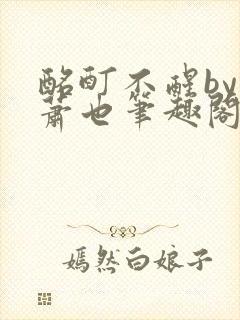 酩酊不醒by
萧也笔趣阁
嫣然白娘子